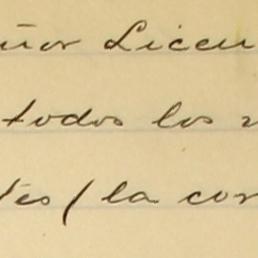 ñor Licen
todos los
tes (la con